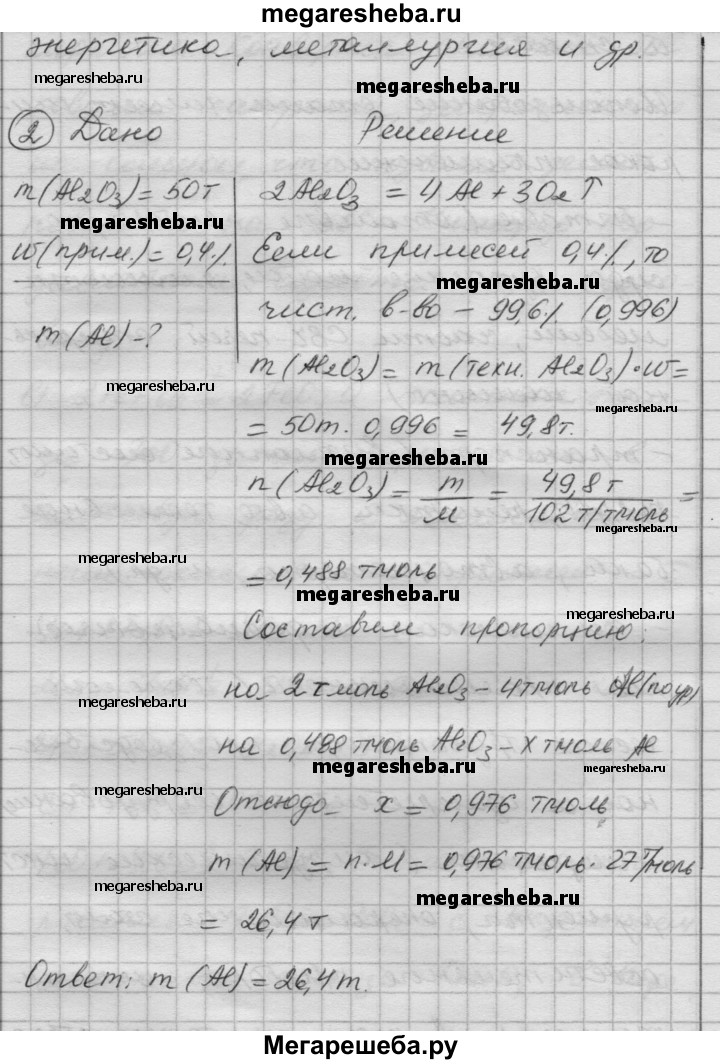 megaresheba.ru
энергетика, металлургия и др.
megaresheba.ru megaresheba.ru
② Дано Решение
megaresheba.ru
m(Al2O3) = 50т 2Al2O3 = 4Al + 3O2↑
megaresheba.ru
w(прим.) = 0,4% Если примесей 0,4%, то
megaresheba.ru
чист. в-во – 99,6% (0,996)
m(Al) - ?
m(Al2O3) = m(техн. Al2O3)·w=
megaresheba.ru
megaresheba.ru
= 50т · 0,996 = 49,8т.
megaresheba.ru
n(Al2O3) = m/M = 49,8т/102т/тмоль =
megaresheba.ru
megaresheba.ru
= 0,488 тмоль
megaresheba.ru
megaresheba.ru
Составим пропорцию:
на 2тмоль Al2O3 – 4тмоль Al (по ур)
megaresheba.ru
на 0,488 тмоль Al2O3 – x тмоль Al
megaresheba.ru megaresheba.ru
megaresheba.ru
Отсюда x = 0,976 тмоль
megaresheba.ru
m(Al) = n·M = 0,976 тмоль · 27т/тмоль
megaresheba.ru
megaresheba.ru
= 26,4т
Ответ: m(Al) = 26,4т.
Мегарешеба.ру